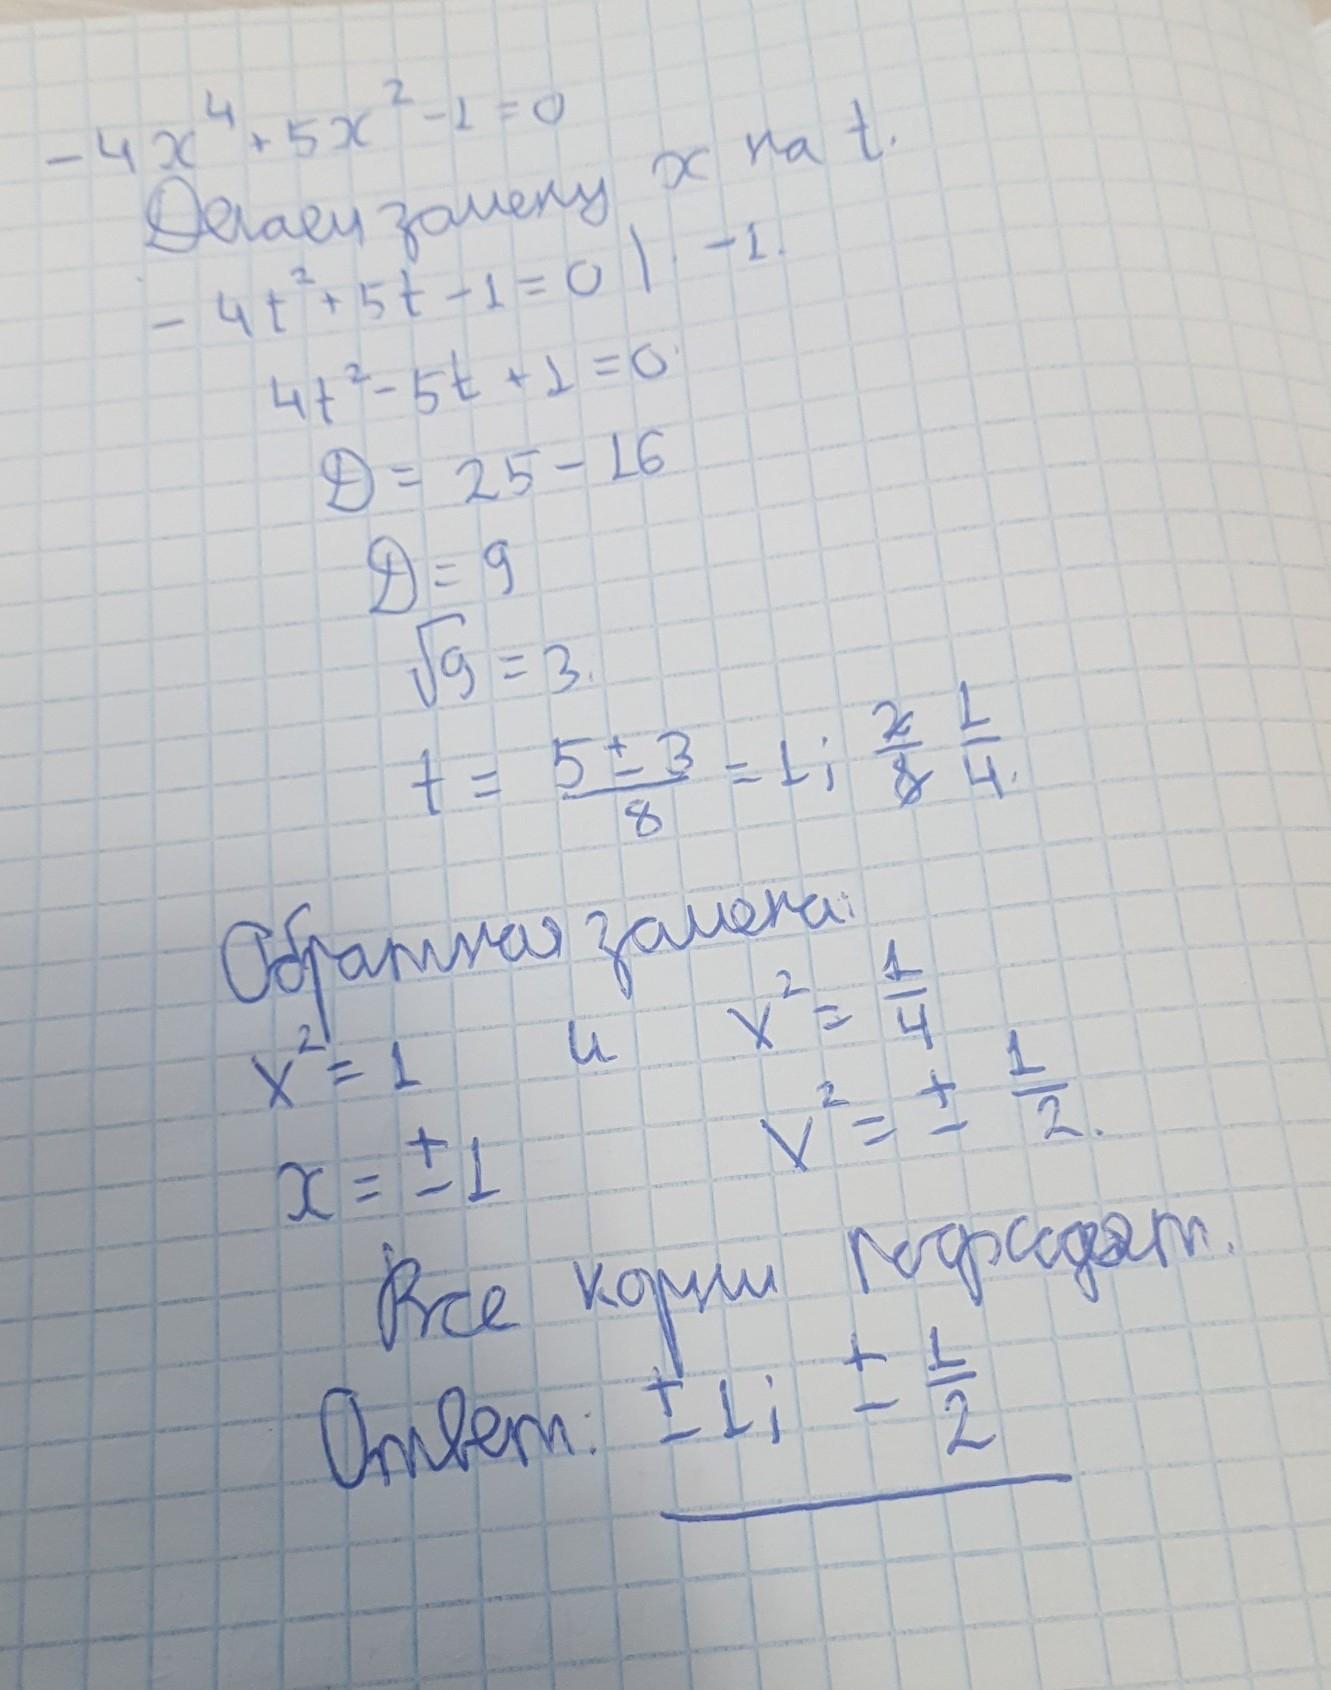 -4x⁴+5x²-1=0
Делаем замену x на t.
-4t²+5t-1=0 | · -1.
4t²-5t+1=0
D=25-16
D=9
√9=3.
t = (5±3)/8 = 1; 2/8 1/4.
Обратная замена:
x²=1 и x²=1/4
x=±1 x²=±1/2.
Все корни подходят.
Ответ: ±1; ±1/2